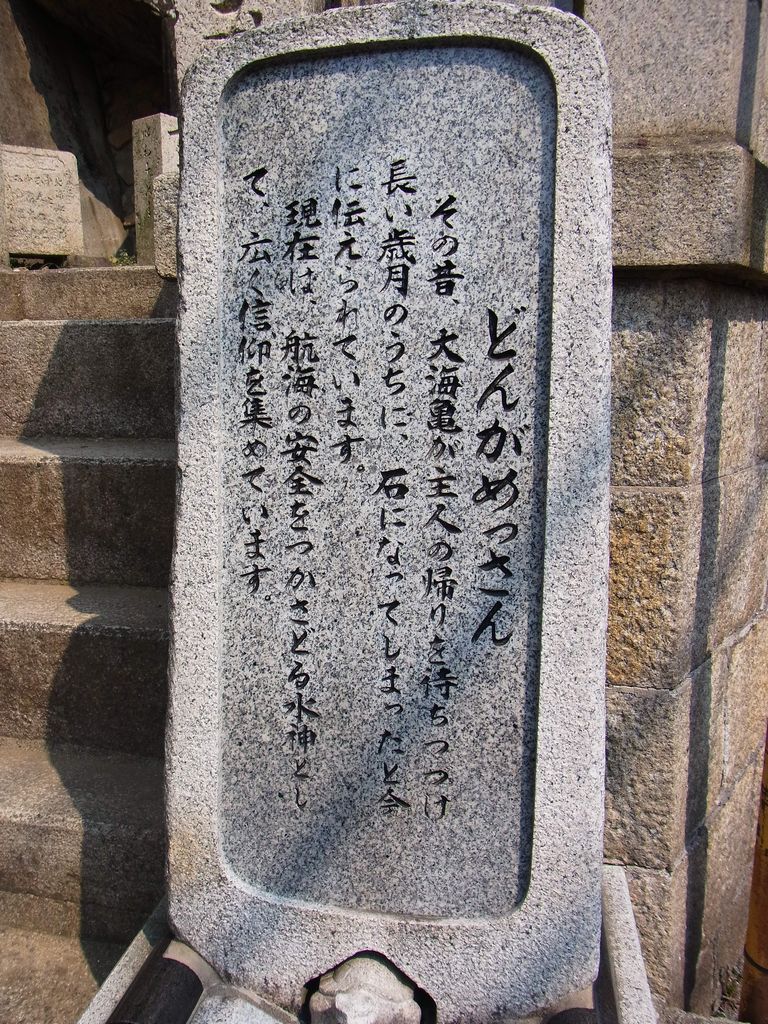 どんがめっさん
その昔、大海亀が主人の帰りを待ちつづけ
長い歳月のうちに、石になってしまったと今
に伝えられています。
現在は、航海の安全をつかさどる水神とし
て、広く信仰を集めています。